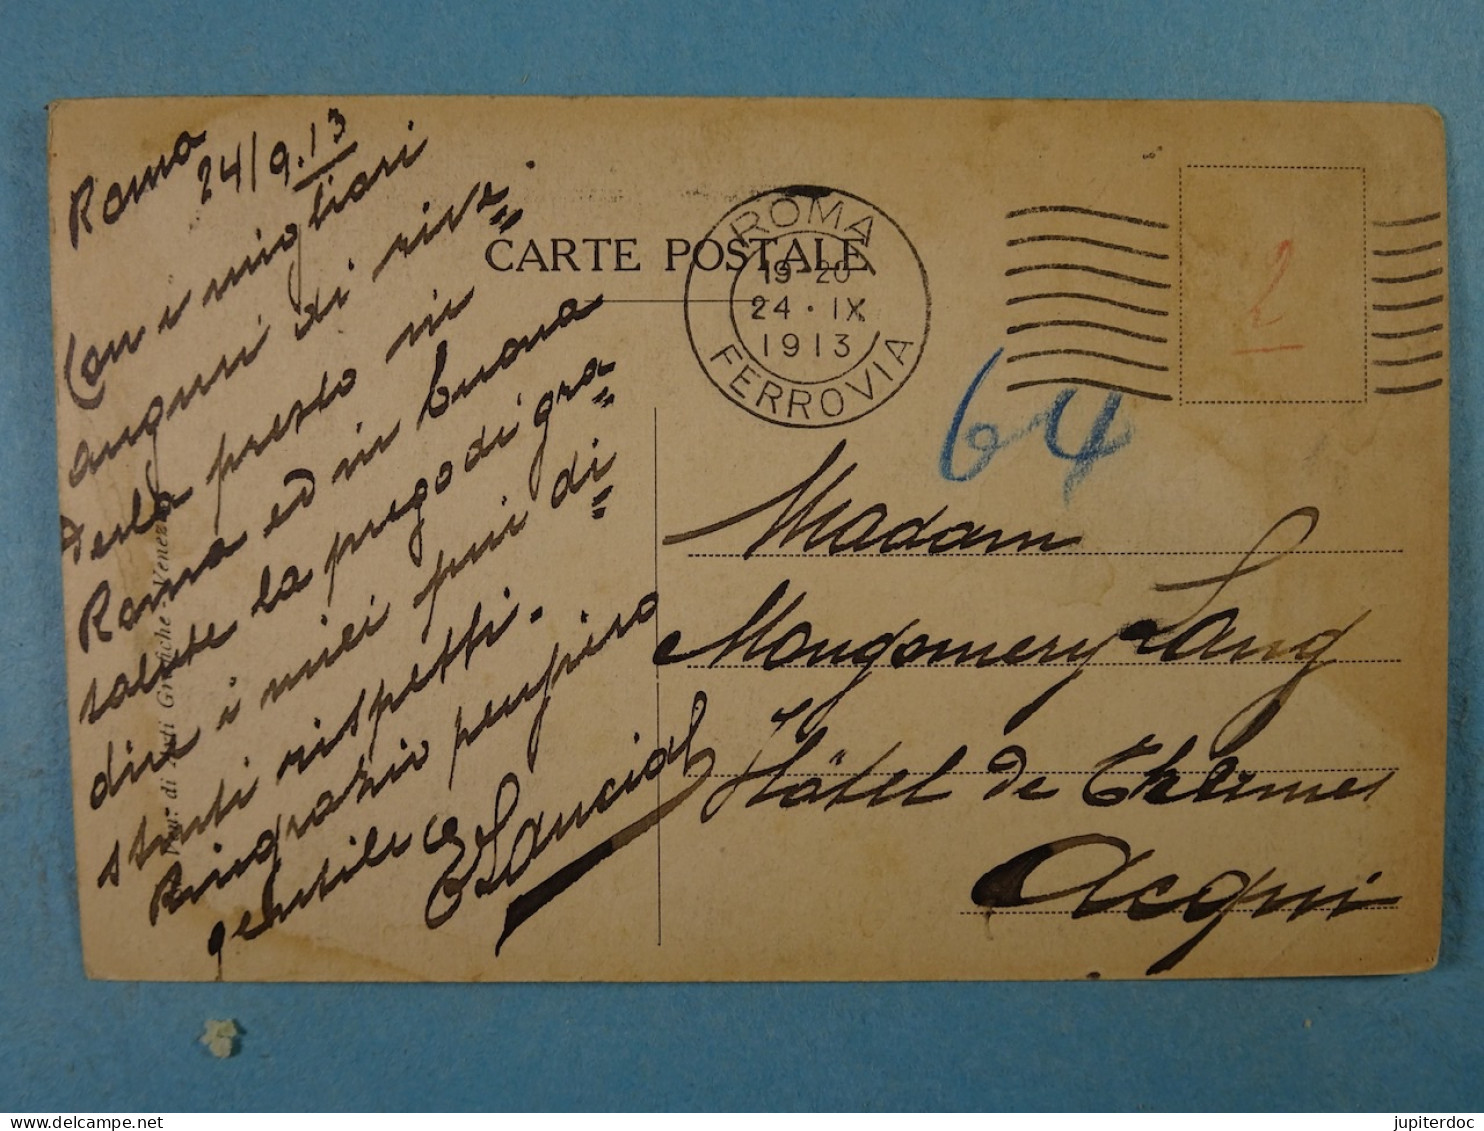 Roma
24/9.13
Con i migliori
auguri di rive=
derla presto in
Roma ed in buona
salute la prego di gra=
dire i miei più di=
stinti rispetti.
Ringrazio
gentile
CARTE POSTALE
ROMA
19-20
24·IX
1913
FERROVIA
2
64
Madam
Mongomery Lang
Hôtel de Thermes
Acqui
di Arti Grafiche - Venezia
jupiterdoc